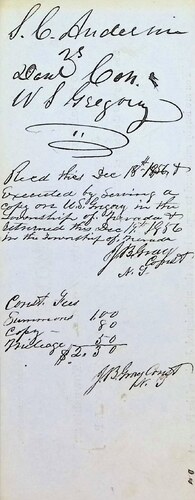 S. C. Anderson
vs
Danl Con &
W S Gregory
Recd this Dec 18th 1856 &
Executed by Serving a
copy on W S Gregory in the
Township of Nevada &
returned this Dec 18th 1856
in the township of Nevada
J B Gray
N. T. Const
Const. Fees
Summons 100
Copy 80
Mileage 50
$2.30
J B Gray Const
N. T